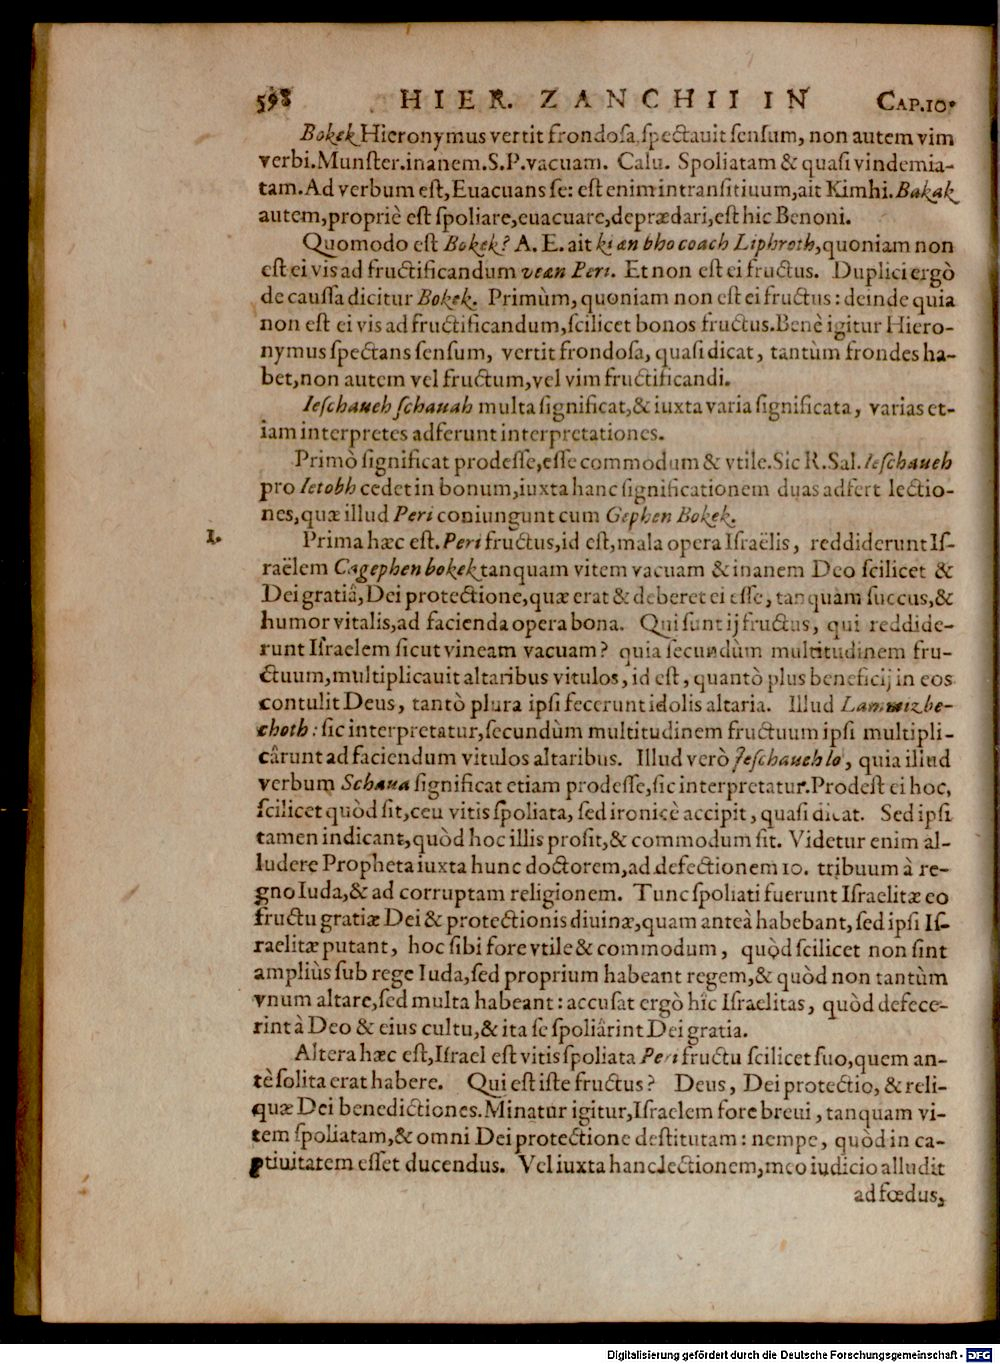 598 HIER. ZANCHII IN CAP.10.
Bokek Hieronymus vertit frondosa, spectauit sensum, non autem vim
verbi. Munster. inanem. S. P. vacuam. Calu. Spoliatam & quasi vindemia-
tam. Ad verbum est, Euacuans se: est enim intransitiuum, ait Kimhi. Bakak
autem, propriè est spoliare, euacuare, deprædari, est hic Benoni.
Quomodo est Bokek? A. E. ait ki an bho coach Liphroth, quoniam non
est ei vis ad fructificandum vean Peri. Et non est ei fructus. Duplici ergò
de caussa dicitur Bokek. Primùm, quoniam non est ei fructus: deinde quia
non est ei vis ad fructificandum, scilicet bonos fructus. Benè igitur Hiero-
nymus spectans sensum, vertit frondosa, quasi dicat, tantùm frondes ha-
bet, non autem vel fructum, vel vim fructificandi.
Ieschaueh schauah multa significat, & iuxta varia significata, varias et-
iam interpretes adferunt interpretationes.
Primò significat prodesse, esse commodum & vtile. Sic R. Sal. Ieschaueh
pro Ietobh cedet in bonum, iuxta hanc significationem duas adfert lectio-
nes, quæ illud Peri coniungunt cum Gephen Bokek.
I. Prima hæc est. Peri fructus, id est, mala opera Israëlis, reddiderunt Is-
raëlem Cagephen bokek tanquam vitem vacuam & inanem Deo scilicet &
Dei gratiâ, Dei protectione, quæ erat & deberet ei esse, tanquam succus, &
humor vitalis, ad facienda opera bona. Qui sunt ij fructus, qui reddide-
runt Israelem sicut vineam vacuam? quia secundùm multitudinem fru-
ctuum, multiplicauit altaribus vitulos, id est, quantò plus beneficij in eos
contulit Deus, tantò plura ipsi fecerunt idolis altaria. Illud Lammizbe-
choth: sic interpretatur, secundùm multitudinem fructuum ipsi multipli-
cârunt ad faciendum vitulos altaribus. Illud verò Jeschaueh lo, quia illud
verbum Schaua significat etiam prodesse, sic interpretatur. Prodest ei hoc,
scilicet quòd sit, ceu vitis spoliata, sed ironicè accipit, quasi dicat. Sed ipsi
tamen indicant, quòd hoc illis prosit, & commodum sit. Videtur enim al-
ludere Propheta iuxta hunc doctorem, ad defectionem 10. tribuum à re-
gno Iuda, & ad corruptam religionem. Tunc spoliati fuerunt Israelitæ eo
fructu gratiæ Dei & protectionis diuinæ, quam anteà habebant, sed ipsi Is-
raelitæ putant, hoc sibi fore vtile & commodum, quòd scilicet non sint
ampliùs sub rege Iuda, sed proprium habeant regem, & quòd non tantùm
vnum altare, sed multa habeant: accusat ergò hîc Israelitas, quòd defece-
rint à Deo & eius cultu, & ita se spoliârint Dei gratia.
Altera hæc est, Israel est vitis spoliata Peri fructu scilicet suo, quem an-
tè solita erat habere. Qui est iste fructus? Deus, Dei protectio, & reli-
quæ Dei benedictiones. Minatur igitur, Israelem fore breui, tanquam vi-
tem spoliatam, & omni Dei protectione destitutam: nempe, quòd in ca-
ptiuitatem esset ducendus. Vel iuxta hanc lectionem, meo iudicio alludit
ad fœdus,
Digitalisierung gefördert durch die Deutsche Forschungsgemeinschaft - DFG